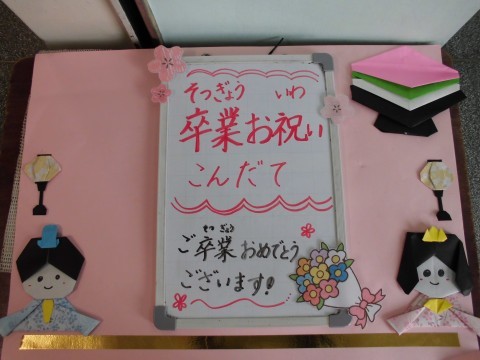 そつぎょう いわ
卒業お祝い
こんだて
そつ ぎょう
ご卒業おめでとう
ございます!